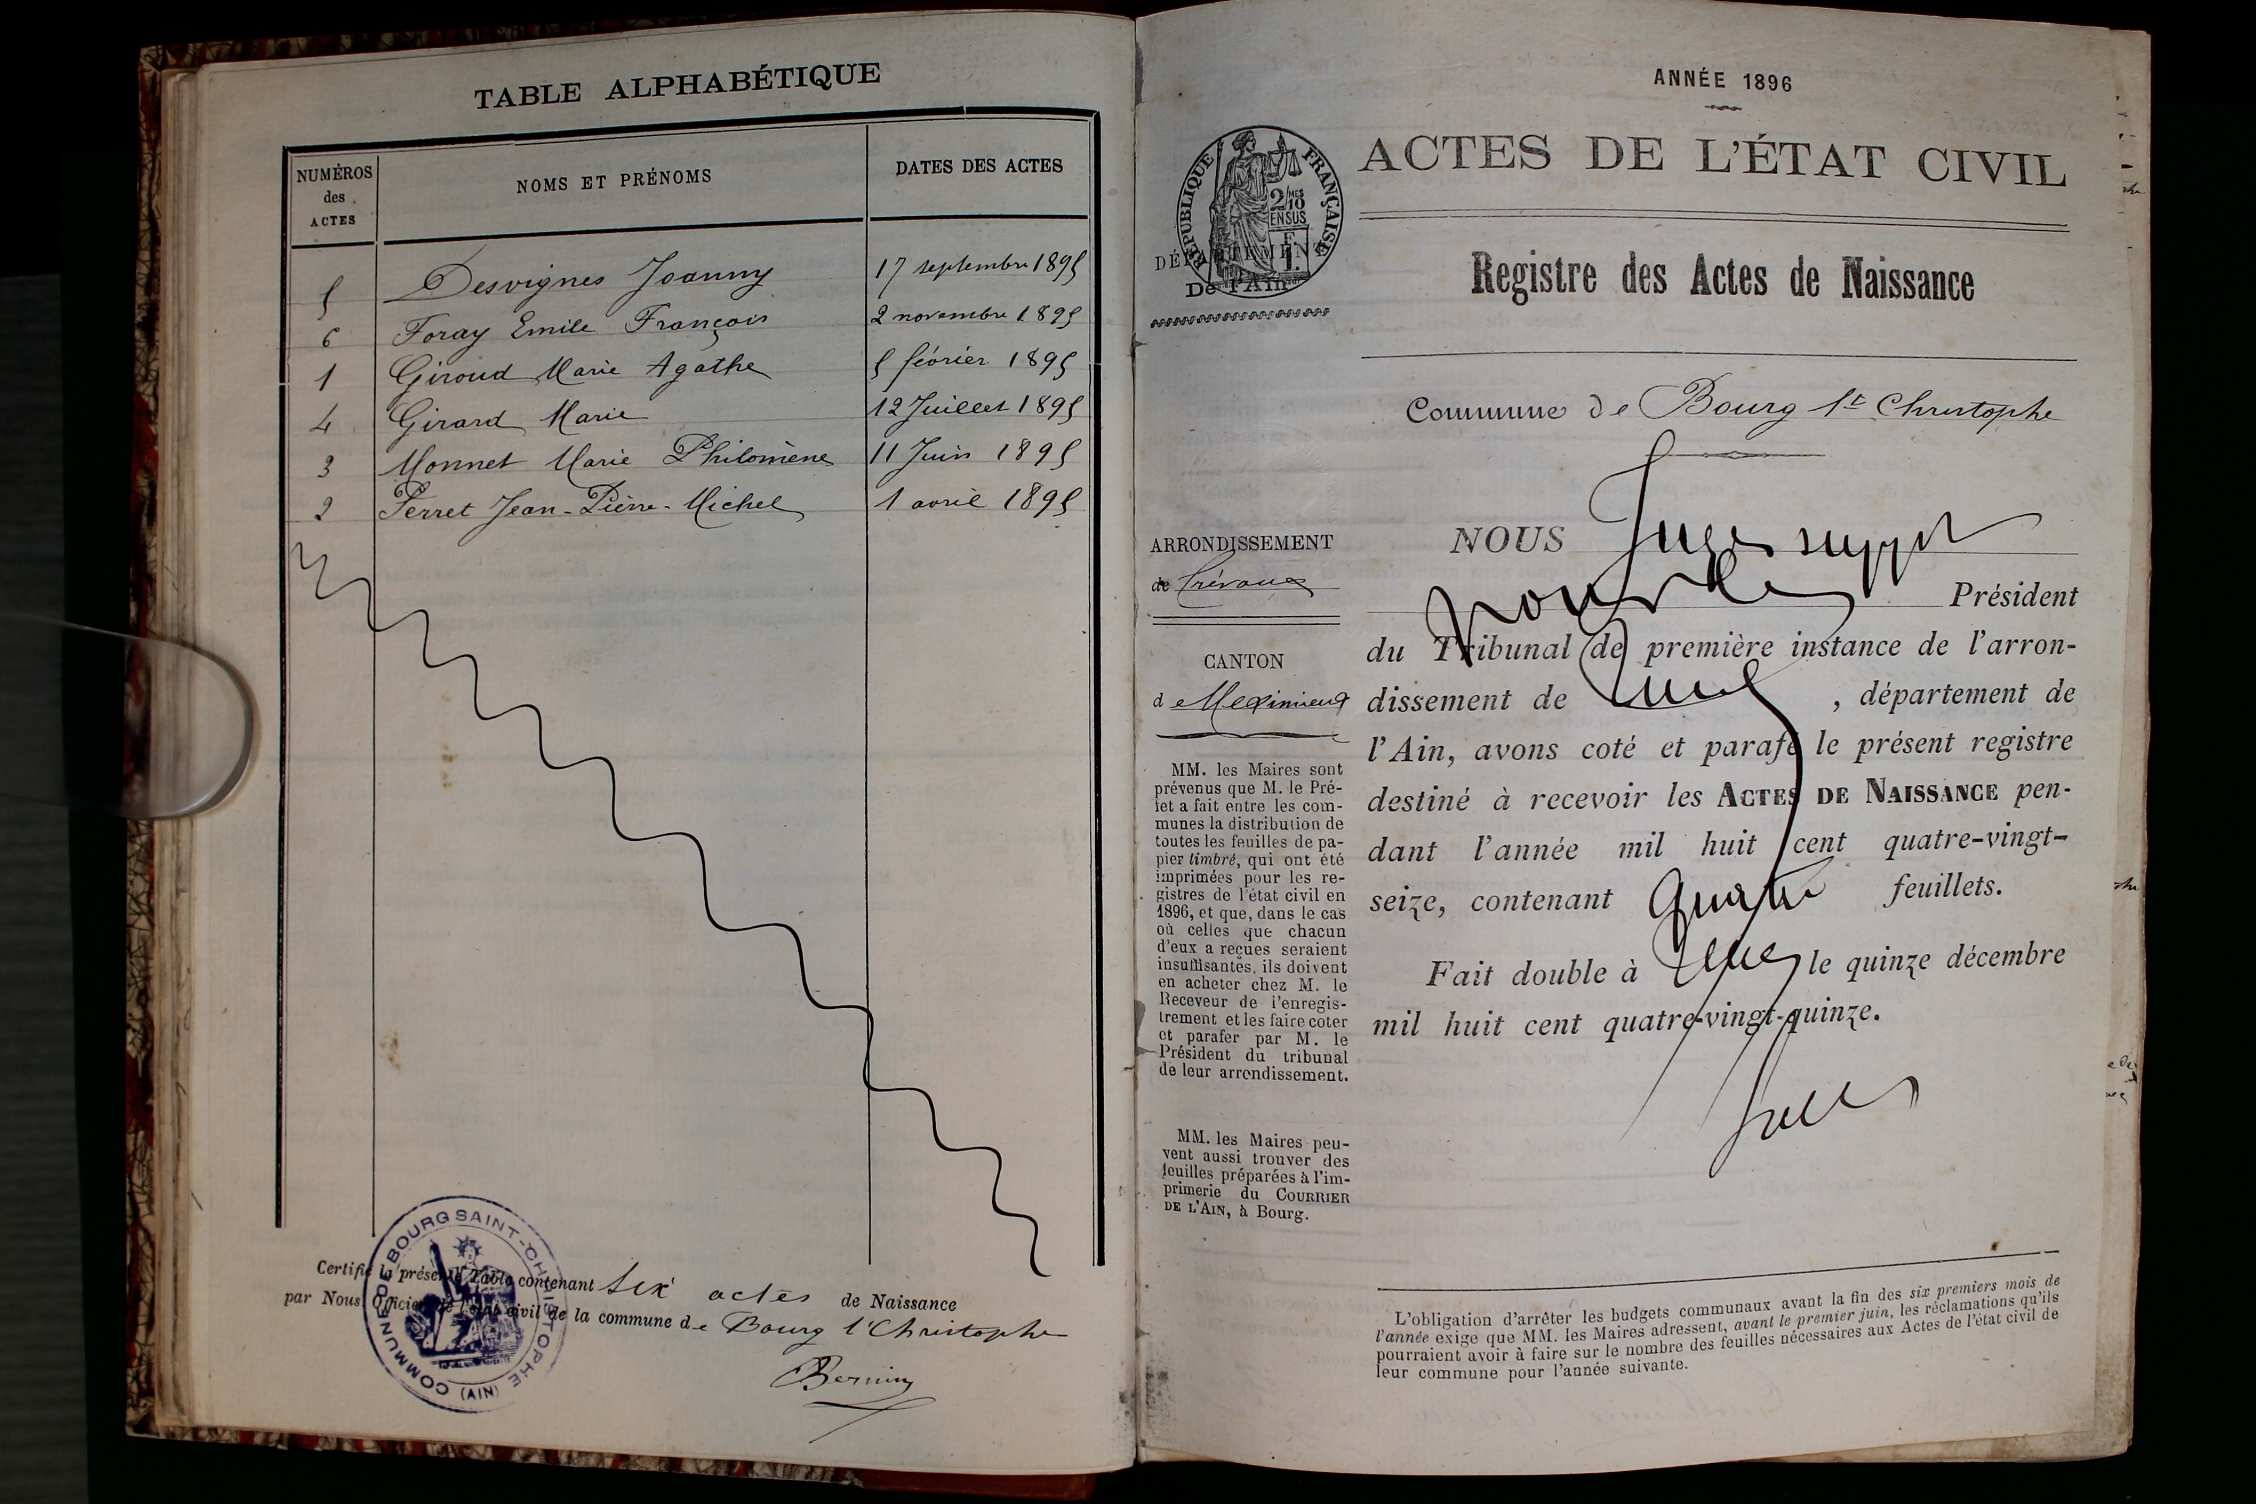 TABLE ALPHABÉTIQUE
NUMÉROS des ACTES
NOMS ET PRÉNOMS
DATES DES ACTES
5 Desvignes Joanny 17 septembre 1895
6 Foray Emile François 2 novembre 1895
1 Giroud Marie Agathe 5 février 1895
4 Girard Marie 12 Juillet 1895
3 Monnet Marie Philomène 11 Juin 1895
2 Perret Jean-Pierre-Michel 1 avril 1895
Certifié la présente Table contenant six actes de Naissance
par Nous Officier de l'état civil de la commune de Bourg St Christophe
COMMUNE DE BOURG SAINT-CHRISTOPHE (AIN)
ANNÉE 1896
ACTES DE L'ÉTAT CIVIL
RÉPUBLIQUE FRANÇAISE
2/10 MES
EN SUS
DÉPARTEMENT
De l'Ain
Registre des Actes de Naissance
Commune de Bourg St Christophe
ARRONDISSEMENT
de Trévoux
CANTON
de Meximieux
MM. les Maires sont
prévenus que M. le Pré-
fet a fait entre les com-
munes la distribution de
toutes les feuilles de pa-
pier timbré, qui ont été
imprimées pour les re-
gistres de l'état civil en
1896, et que, dans le cas
où celles que chacun
d'eux a reçues seraient
insuffisantes, ils doivent
en acheter chez M. le
Receveur de l'enregis-
trement et les faire coter
et parafer par M. le
Président du tribunal
de leur arrondissement.
MM. les Maires peu-
vent aussi trouver des
feuilles préparées à l'im-
primerie du COURRIER
DE L'AIN, à Bourg.
NOUS Juge suppt
Président
du Tribunal de première instance de l'arron-
dissement de , département de
l'Ain, avons coté et parafé le présent registre
destiné à recevoir les ACTES DE NAISSANCE pen-
dant l'année mil huit cent quatre-vingt-
seize, contenant quatre feuillets.
Fait double à le quinze décembre
mil huit cent quatre-vingt-quinze.
L'obligation d'arrêter les budgets communaux avant la fin des six premiers mois de
l'année exige que MM. les Maires adressent, avant le premier juin, les réclamations qu'ils
pourraient avoir à faire sur le nombre des feuilles nécessaires aux Actes de l'état civil de
leur commune pour l'année suivante.